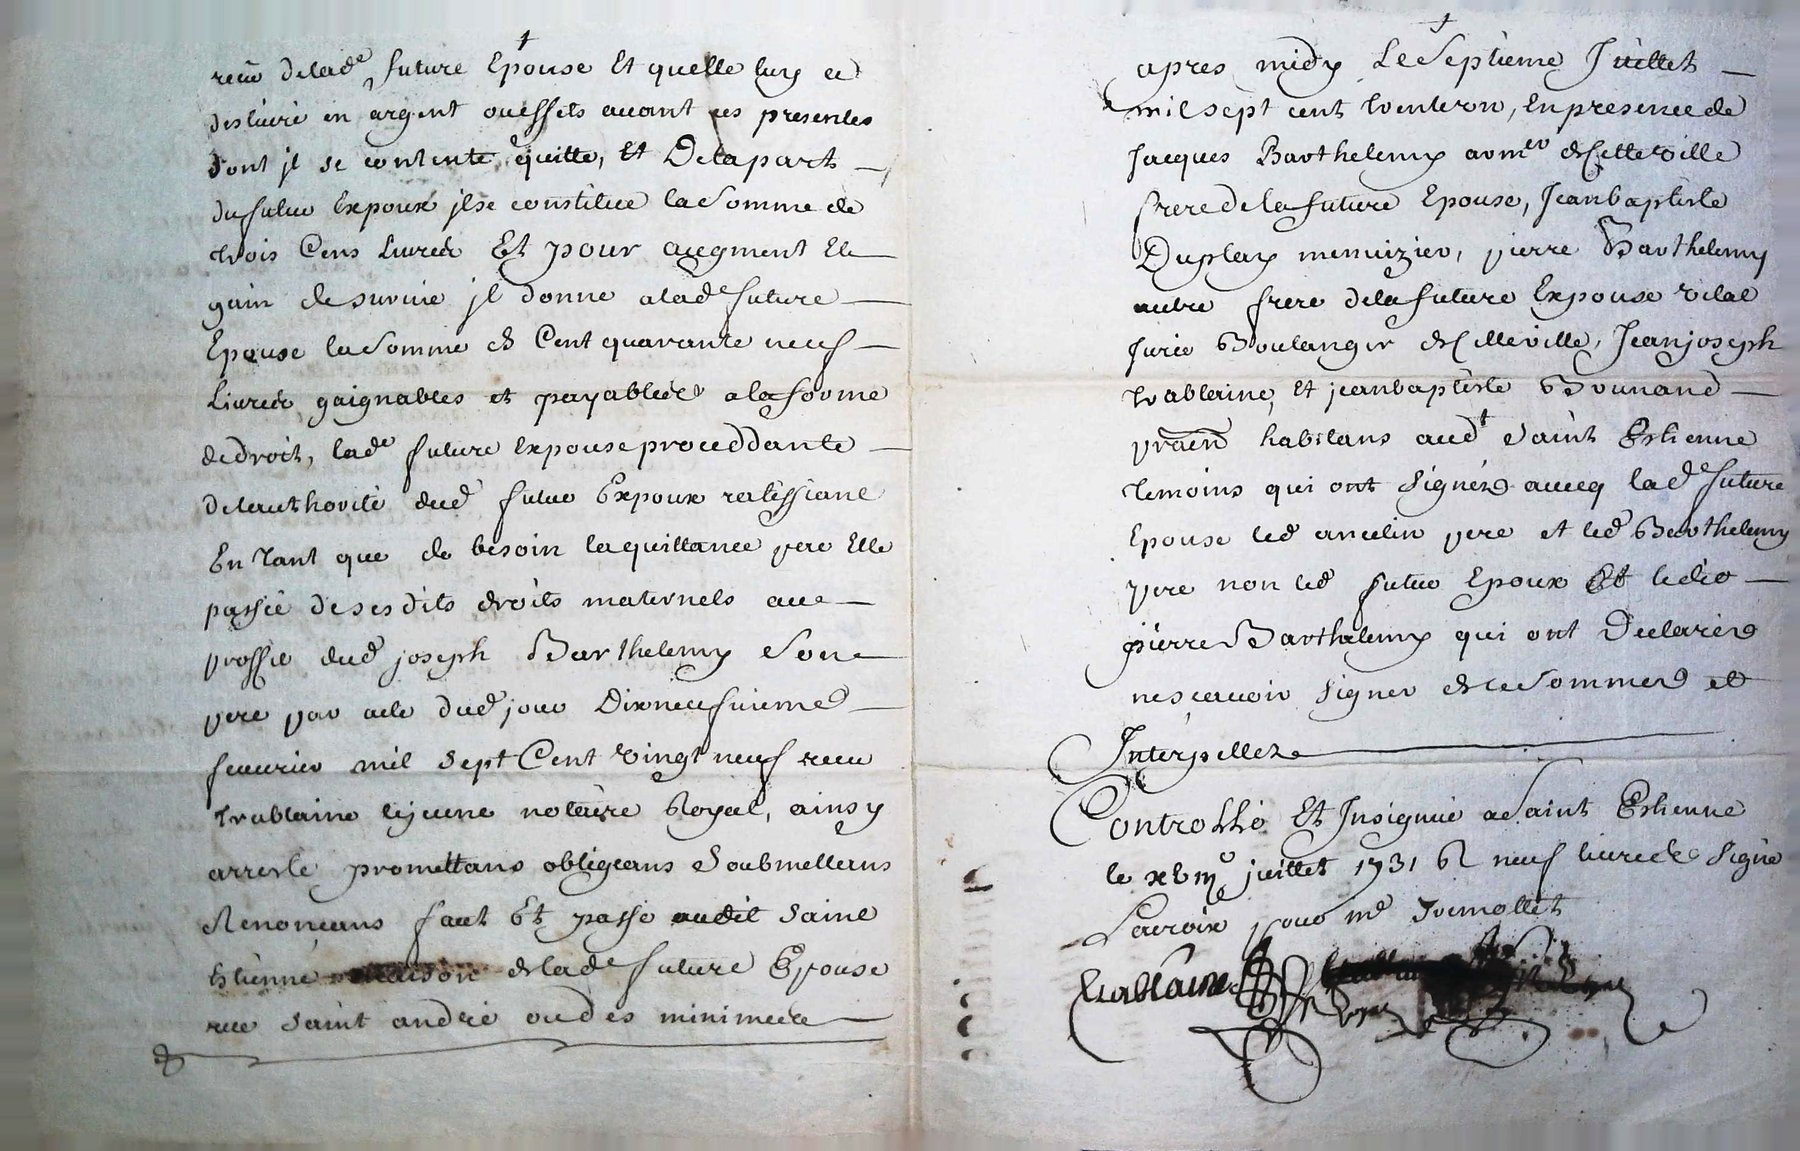 receu de lade future Epouse Et quelle luy a
deslivré en argent ou effets avant ces presentes
dont jl se contente, quitte, Et De la part
du futur Expoux jl se constitue la somme de
trois Cens livres Et pour augment Et
gain de survie jl donne a lade future
Epouse la somme de Cent quarante neuf
Livres gaignables et payables a la forme
de droit, lade future expouse proceddante
de lauthorité dud futur Expoux ratiffiant
En tant que de besoin la quittance par Elle
passée de ses dits droits maternels au
proffit dud joseph Barthelemy son
pere par acte dud jour Dixneufvieme
fevrier mil sept Cent vingt neuf receu
trablaine le jeune notaire Royal, ainsy
arresté promettans obligeans soubmettans
Renonceans fait Et passé audit saint
Estienne maison de lade future Epouse
rue saint andré ou des minimes
apres midy Le septieme Juillet
mil sept cent trente un, En presence de
Jacques Barthelemy armer de cette ville
frere de la future Epouse, Jean baptiste
Duplay menuizier, pierre Barthelemy
autre frere de la future Expouse vital
Boulanger de cette ville, Jean joseph
trablaine, Et jean baptiste
habitans aud saint Estienne
temoins qui ont signés avecq lad future
Epouse led ancelin pere et led Barthelemy
pere non led futur Epoux Et ledit
pierre Barthelemy qui ont Declarés
ne scavoir signer de ce sommés et
Interpellez
Controllé Et Insignué a Saint Estienne
le juillet 1731 R neuf livres signé
Lacroix pour mr
trablaine